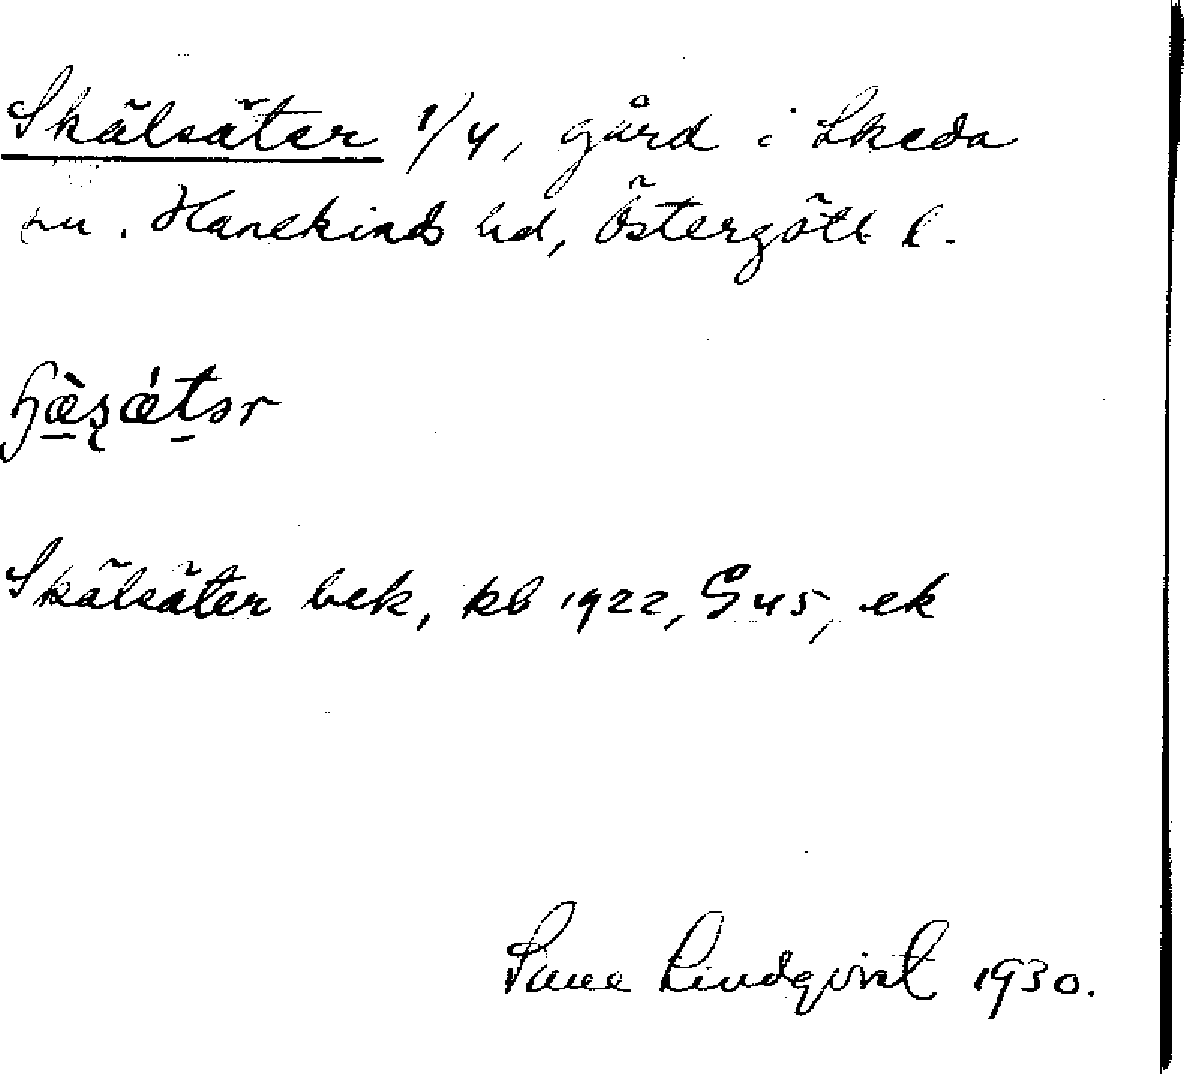 Skälsäter 1/4, gård i Skeda
sn. Hanekinds hd, Östergötl l.
ɧæ̀ʂǽtər
Skälsäter bek, kb 1922, G 45, ek
Sune Lindqvist 1930.